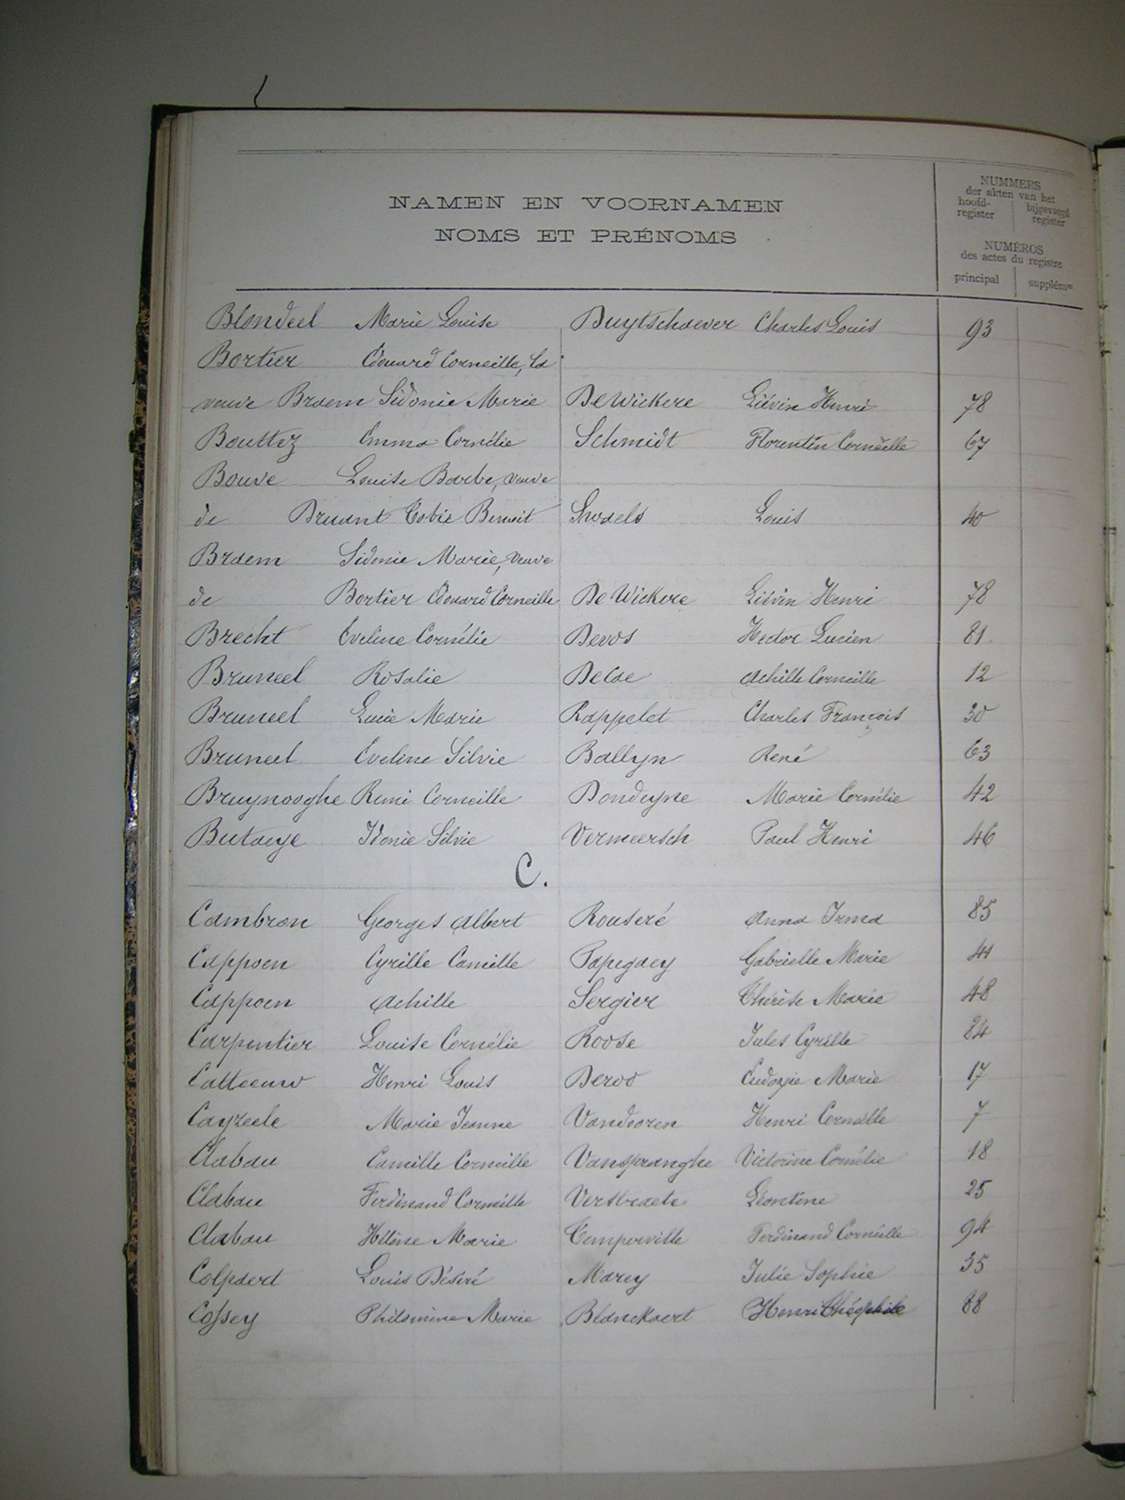 NAMEN EN VOORNAMEN
NOMS ET PRÉNOMS
NUMMERS
der akten van het
hoofd-register bijgevoegd register
NUMÉROS
des actes du registre
principal supplémre
Blondeel Marie Louise Duytschaever Charles Louis 93
Bortier Edouard Corneille, la
veuve Braem Sidonie Marie DeWickere Liévin Henri 78
Bouttez Emma Cornélie Schmidt Florentin Corneille 67
Bouve Louise Barbe, veuve
de Druant Tobie Benoit Louis 40
Braem Sidonie Marie, veuve
de Bortier Edouard Corneille DeWickere Liévin Henri 78
Brecht Eveline Cornélie Devos Hector Lucien 81
Bruneel Rosalie Achille Corneille 12
Bruneel Lucie Marie Rappelet Charles François 30
Bruneel Eveline Silvie Ballyn René 63
Bruynooghe Remi Corneille Dondeyne Marie Cornélie 42
Butaeye Idonie Silvie Vermeersch Paul Henri 46
C.
Cambron Georges Albert Rouseré Anna Irma 85
Cappoen Cyrille Camille Papegaey Gabrielle Marie 44
Cappoen Achille Sergier Thérèse Marie 48
Carpentier Louise Cornélie Roose Jules Cyrille 84
Catteeuw Henri Louis Deroo Eudoxie Marie 17
Cayzeele Marie Jeanne Vandooren Henri Corneille 7
Clabau Camille Corneille Vanspranghe Victorine Cornélie 18
Clabau Ferdinand Corneille Verstraete Léontine 25
Clabau Hélène Marie Temperville Ferdinand Corneille 94
Colpaert Louis Désiré Marey Julie Sophie 35
Cossey Philomène Marie Blanckaert Henri Théophile 88